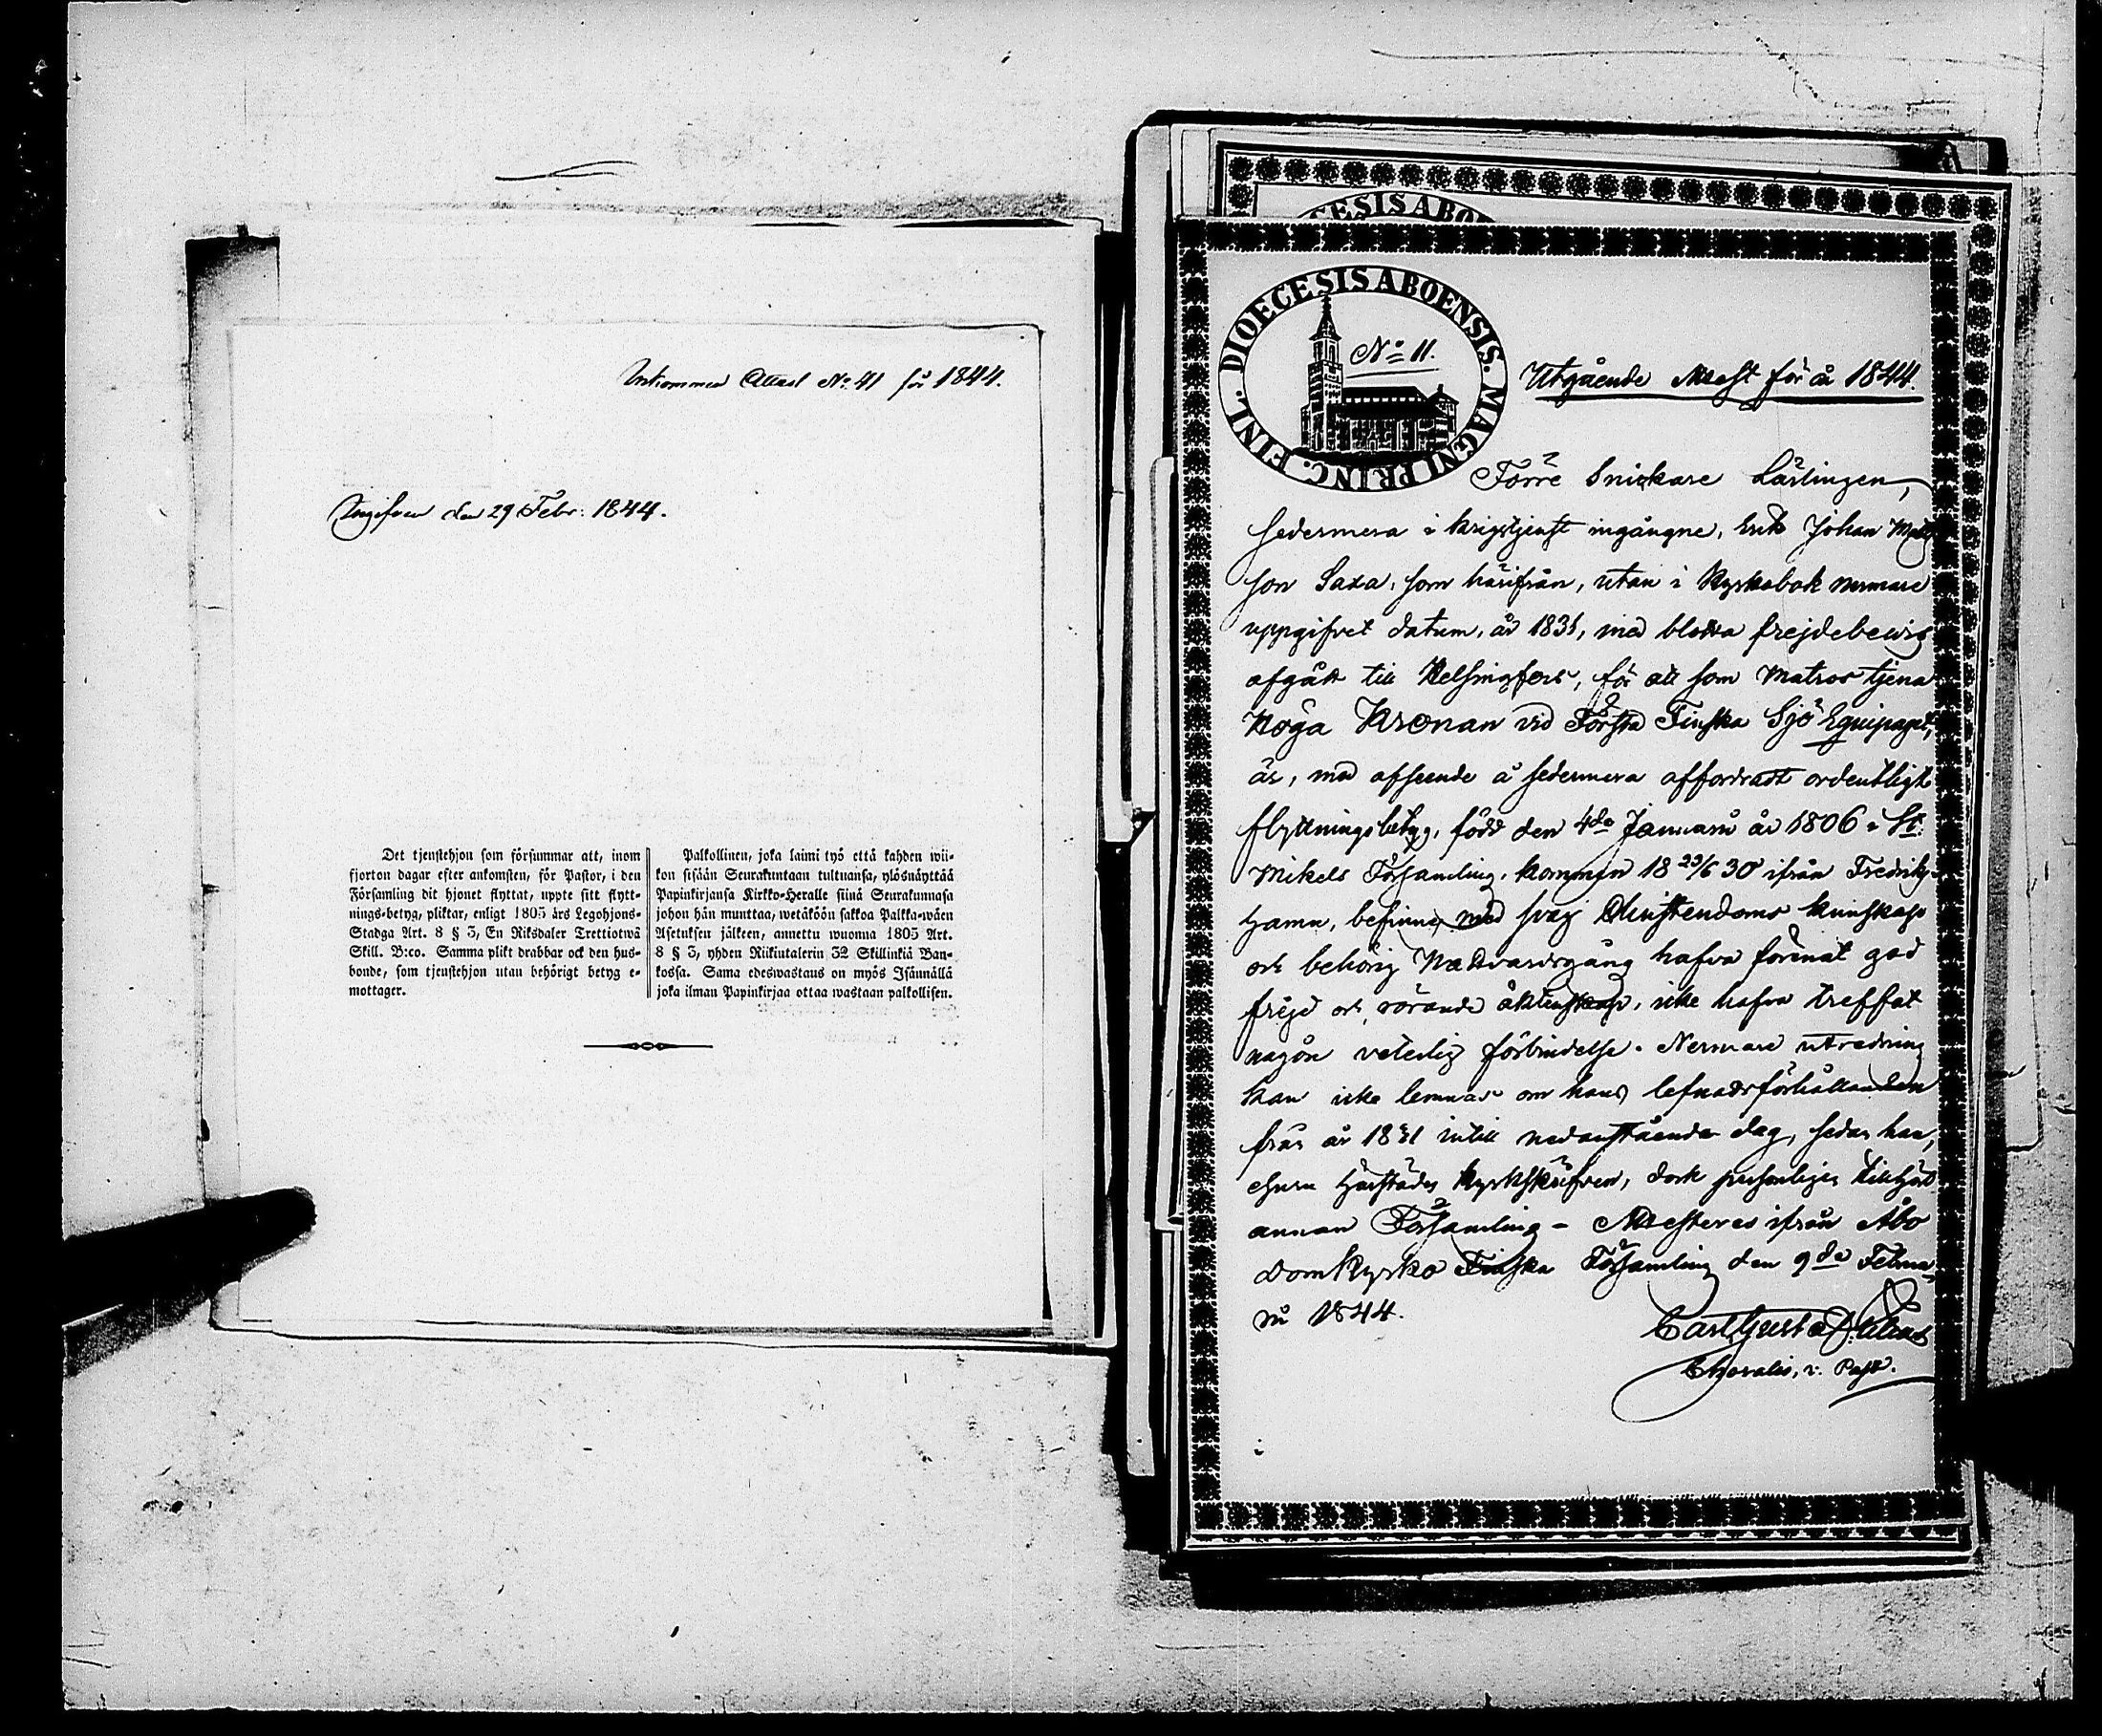 Inkommen Attest No. 41 för 1844.
Ingifven den 29 Febr. 1844.
Det tjenstehjon som försummar att, inom
fjorton dagar efter ankomsten, för Pastor, i den
Församling dit hjonet flyttat, uppte sitt flytt-
nings-betyg, pliktar, enligt 1805 års Legohjons-
Stadga Art. 8 § 3, En Riksdaler Trettiotwå
Skill. B:co. Samma plikt drabbar ock den hus-
bonde, som tjenstehjon utan behörigt betyg e-
mottager.
Palkollinen, joka laimi työ että kahden wii-
kon sisään Seurakuntaan tultuansa, ylösnäyttää
Papinkirjansa Kirkko-Heralle siinä Seurakunnasa
johon hän munttaa, wetäköön sakkoa Palkka-wäen
Asetuksen jälkeen, annettu wuonna 1805 Art.
8 § 3, yhden Riikintalerin 32 Skillinkiä Ban-
kossa. Sama edeswastaus on myös Isännällä
joka ilman Papinkirjaa ottaa wastaan palkollisen.
CESIS ABO
DIOECESIS ABOENSIS. MAGNI PRINC. FINL.
No 11.
Utgående Attest för år 1844.
Förre Snickare Lärlingen,
sedermera i krigstjenst ingångne, Erik Johan Mats
son Saxa, som härifrån, utan i Kyrkobok nermare
uppgifvet datum, år 1831, med blotta frejdebewis
afgått till Helsingfors, för att som Matros tjena
Höga Kronan vid Första Finska Sjö Equipaget,
är, med afseende å sedermera affordradt ordentligt
flyttningsbetyg, född den 4de Januarii år 1806 i St.
Mikels Församling, kommen 18 23/6 30 ifrån Fredriks-
hamn, befinns med svag Christendoms kunskap
och behörig Nattvardsgång hafva förent god
frejd och, rörande äktenskap, icke hafva treffat
någon veterlig förbindelse. Nermare utredning
kan icke lemnas om hans lefnadsförhållanden
från år 1831 intill nedanstående dag, sedan han,
ehuru härstädes kyrkskrifven, dock personligen tillhört
annan Församling - Attesteres ifrån Åbo
Domkyrko Finska Församling den 9de Februa
rii 1844.
Carl Gustaf
v. Past.